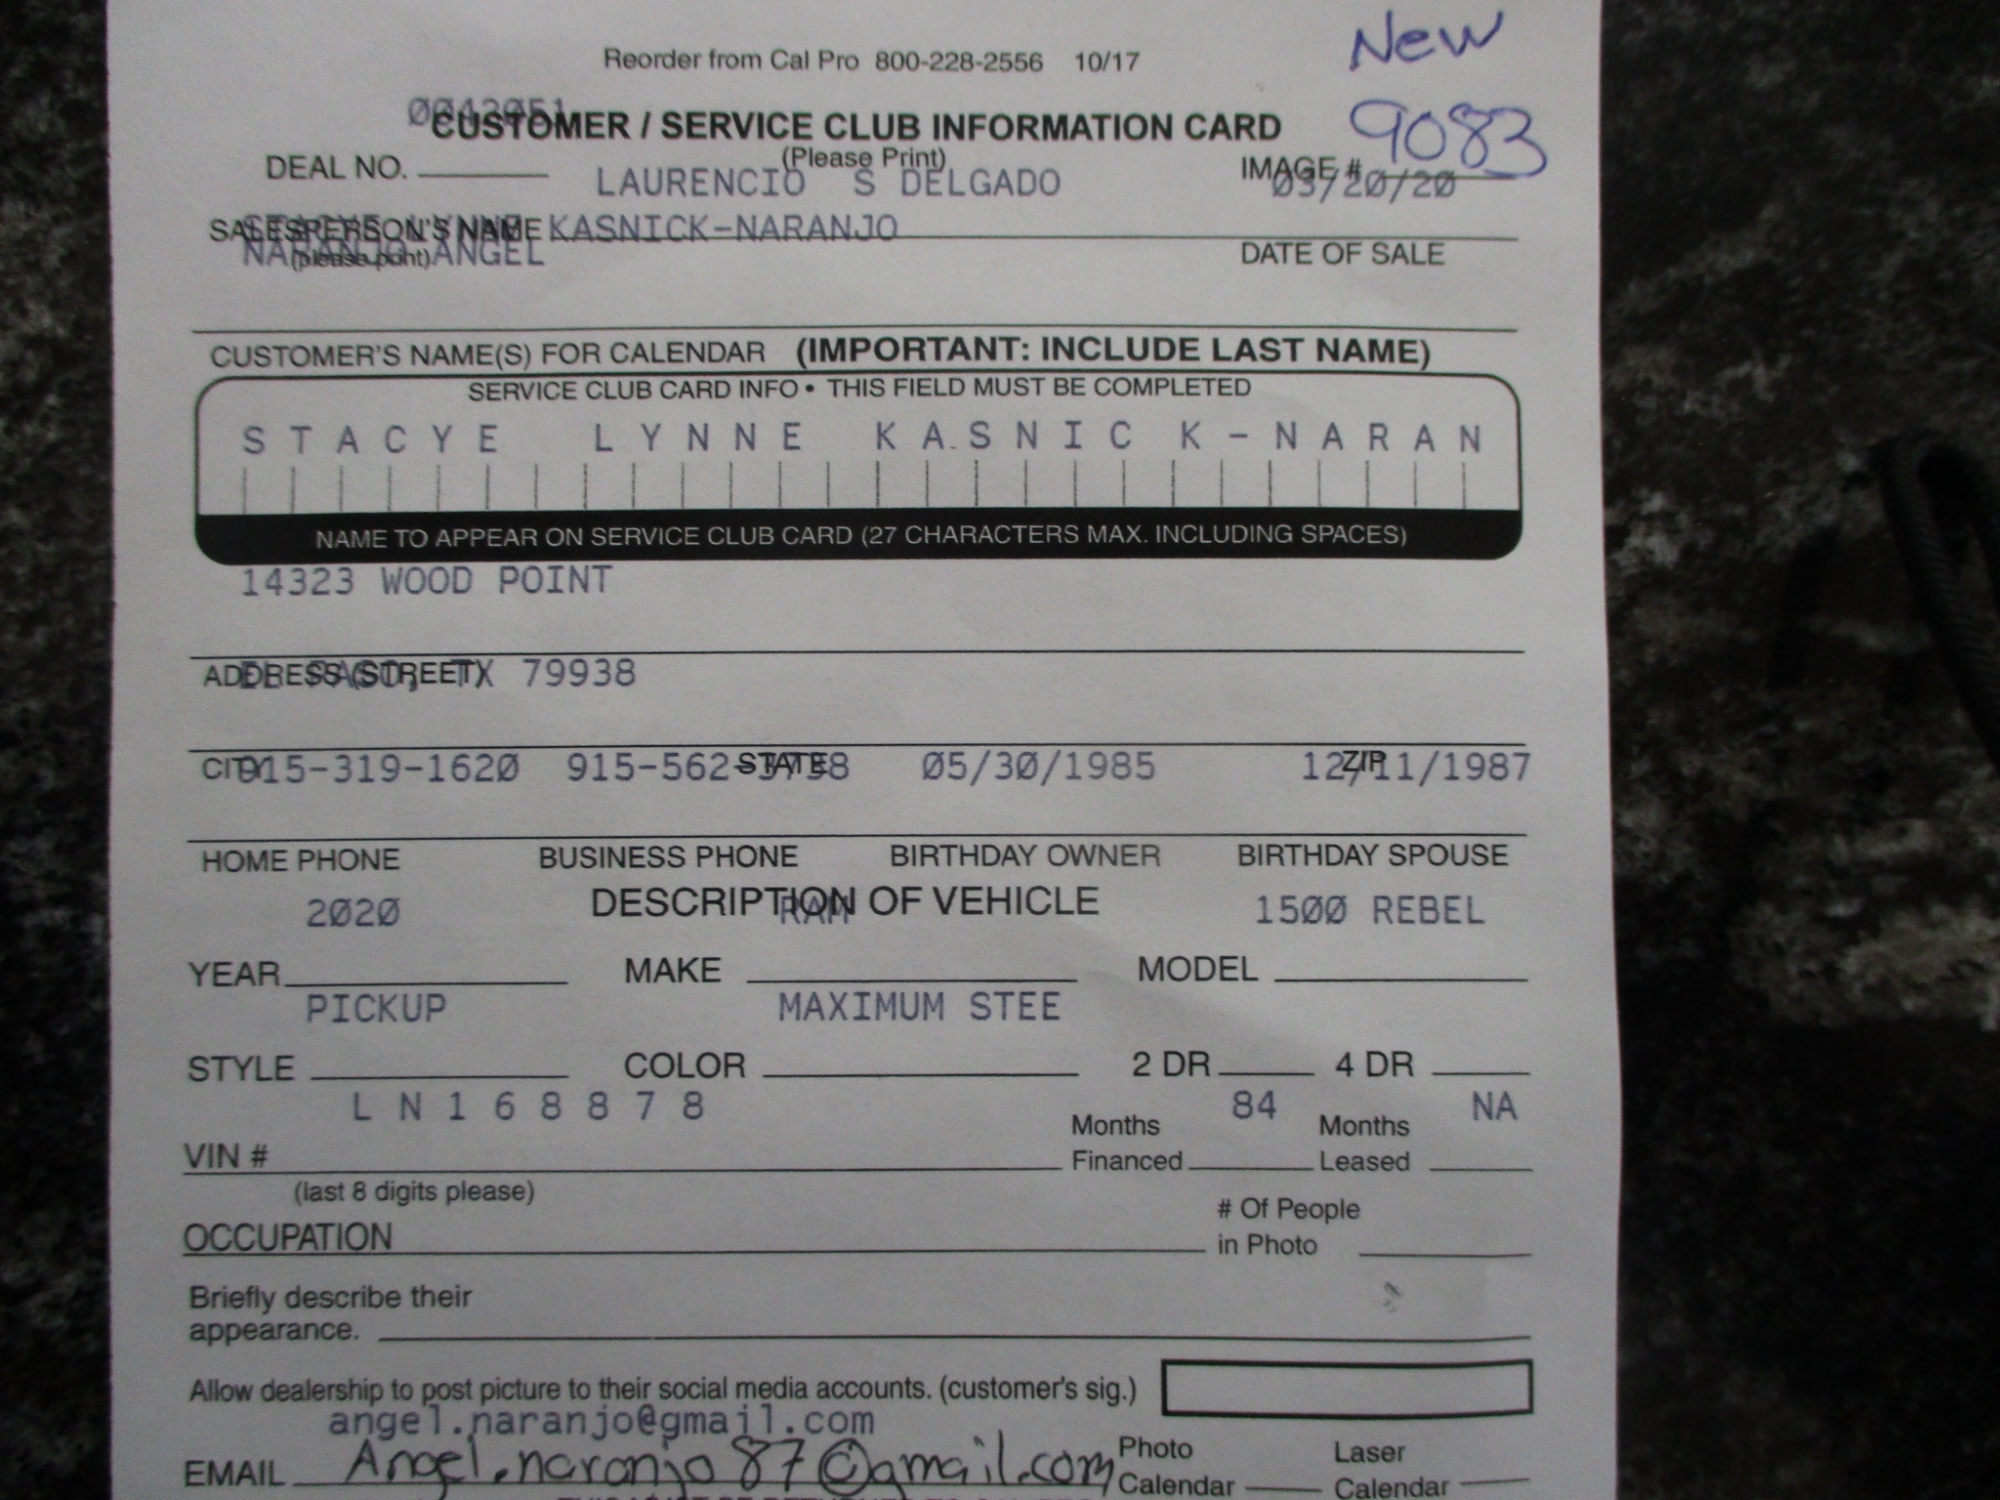 New
Reorder from Cal Pro 800-228-2556 10/17
9083
0043051
CUSTOMER / SERVICE CLUB INFORMATION CARD
(Please Print)
DEAL NO. LAURENCIO S DELGADO IMAGE # 03/20/20
SALESPERSON'S NAME STACYE LYNNE KASNICK-NARANJO
(please print) NARANJO ANGEL DATE OF SALE
CUSTOMER'S NAME(S) FOR CALENDAR (IMPORTANT: INCLUDE LAST NAME)
SERVICE CLUB CARD INFO • THIS FIELD MUST BE COMPLETED
STACYE LYNNE KASNICK-NARAN
NAME TO APPEAR ON SERVICE CLUB CARD (27 CHARACTERS MAX. INCLUDING SPACES)
14323 WOOD POINT
ADDRESS (STREET) EL PASO, TX 79938
CITY 915-319-1620 915-562- STATE 05/30/1985 ZIP 12/11/1987
HOME PHONE BUSINESS PHONE BIRTHDAY OWNER BIRTHDAY SPOUSE
2020 DESCRIPTION OF VEHICLE RAM 1500 REBEL
YEAR MAKE MODEL
PICKUP MAXIMUM STEE
STYLE COLOR 2 DR 4 DR
LN168878 84 NA
VIN # Months Financed Months Leased
(last 8 digits please)
OCCUPATION # Of People in Photo
Briefly describe their
appearance.
Allow dealership to post picture to their social media accounts. (customer's sig.)
angel.naranjo@gmail.com
EMAIL Angel.naranjo87@gmail.com Photo Calendar Laser Calendar